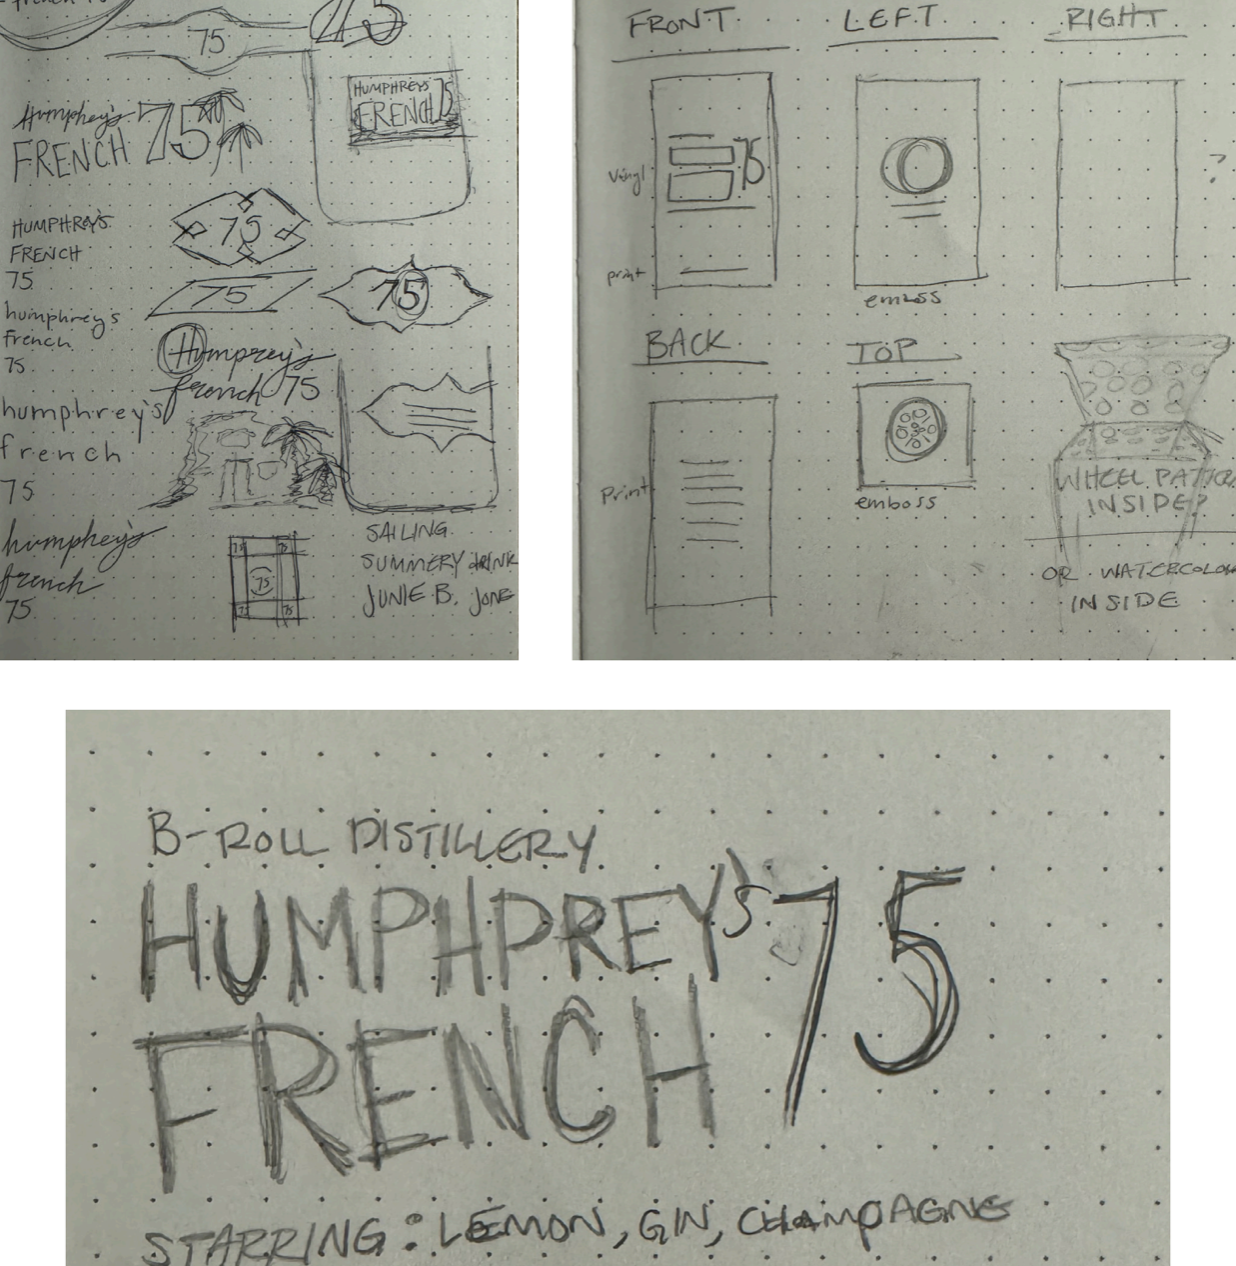 french 75
75
75
HUMPHREYS
FRENCH 75
Humphey's
FRENCH 75
75
HUMPHREY'S
FRENCH
75
75
75
humphrey's
french
75
Humprey's
french 75
humphrey's
french
75
humphey's
french
75
75 75
75
75 75
SAILING
SUMMERY DRINK
JUNIE B. JONE
FRONT
LEFT
RIGHT
vinyl
75
print
emboss
?
BACK
TOP
Print
emboss
WHEEL PATTER
INSIDE?
OR WATERCOLOR
INSIDE
B-ROLL DISTILLERY
HUMPHPREY'S 75
FRENCH
STARRING: LEMON, GIN, CHAMPAGNE